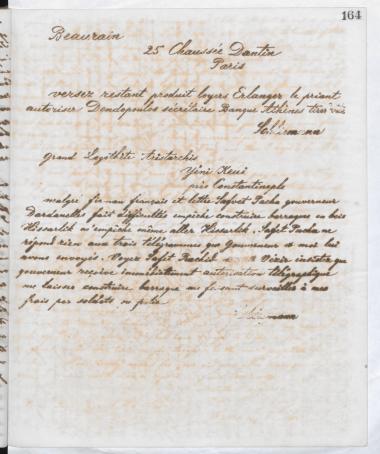 164
Beaurain
25 Chaussée Dantin
Paris
versez restant produit loyers Erlanger le priant
autoriser Dendopoulos sécrétaire Banque Athènes tirer
Schliemann
grand Logothète Aristarchis
Yéni Keui
près Constantinople
malgré firman français et lettre Safvet Pacha gouverneur
Dardanelles fait difficultés empêche construire barraque en bois
Hissarlik m'empêche même aller Hissarlik. Safvet Pacha ne
répond rien aux trois télégrammes que gouverneur et moi lui
avons envoyés. Voyez Safvet Rachid Vizir insistez que
gouverneur reçoive immédiatement autorisation télégraphique
me laisser construire barraque me surveillée à mes
frais par soldats ou